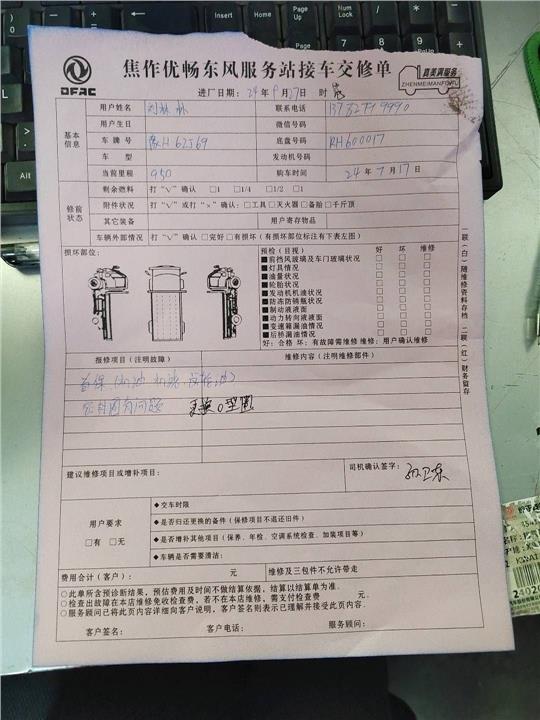 DFAC
焦作优畅东风服务站接车交修单
真美满服务
ZHENMEIMANFUWU
进厂日期: 24 年 9 月 27 日 时
基本信息
用户姓名 联系电话
用户生日 微信号码
车牌号 豫H 62J69 底盘号码 RH600017
车型 发动机号码
当前里程 950 购车时间 24 年 7 月 17 日
修前状态
剩余燃料 打“√”确认 □1 □1/4 □1/2 □1
附件状况 打“√”或打“×”确认: □工具 □灭火器 □备胎 □千斤顶
其它装备 用户寄存物品
车辆外部情况 打“√”确认 □完好 □有损坏 (有损坏部位标注有下表左图)
损坏部位:
预检 (目视) 好 坏 维修
■前挡风玻璃及车门玻璃状况 □ □ □
■灯具情况 □ □ □
■油量状况 □ □ □
■轮胎状况 □ □ □
■发动机机油状况 □ □ □
■防冻防锈瓶状况 □ □ □
■制动液液面 □ □ □
■动力转向液液面 □ □ □
■变速箱漏油情况 □ □ □
■后桥漏油情况 □ □ □
好: 合格 坏: 有故障需维修 维修: 用户确认维修
报修项目 (注明故障) 维修内容 (注明维修部件)
更换O型圈
建议维修项目或增补项目:
司机确认签字:
用户要求
□有 □无
◆交车时限
◆是否归还更换的备件 (保修项目不退还旧件)
◆是否增补其他项目 (保养、年检、空调系统检查、加装项目等)
◆车辆是否需要清洁:
费用合计 (客户): 元 维修及三包件不允许带走
○此单所含预诊断结果,预估费用及时间不做结算依据,结算以结算单为准.
○检查出故障在本店维修免收检查费,若不在本店维修,需支付检查费 元.
○服务顾问已将此页内容详细向客户说明,客户签名则表示已理解并接受此页内容.
客户签名: 客户电话: 服务顾问:
一联 (白) 随维修资料存档 二联 (红) 财务留存